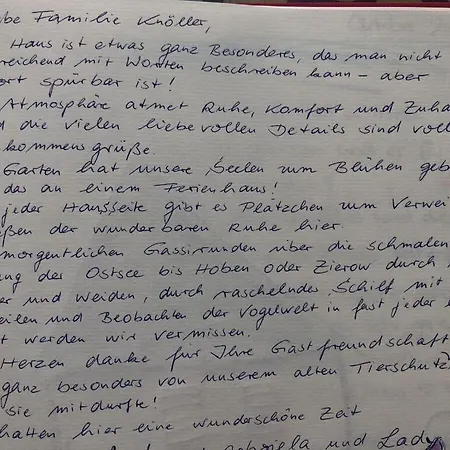 be Familie Knöller,
Haus ist etwas ganz Besonderes, das man nicht
reichend mit Worten beschreiben kann – aber
ort spürbar ist!
Atmosphäre atmet Ruhe, Komfort und Zuha
d die vielen liebevollen Details sind voll
kommensgrüße.
Garten hat unsere Seelen zum Blühen geb
das an einem Ferienhaus!
jeder Hausseite gibt es Plätzchen zum Verwei
eßen der wunderbaren Ruhe hier.
morgentlichen Gassirunden über die schmalen
ng der Ostsee bis Hoben oder Zierow durch
er und Weiden, durch raschelndes Schilf mit
eilen und Beobachten der Vogelwelt in fast jeder
t werden wir vermissen.
Herzen danke für Ihre Gastfreundschaft
ganz besonders von unserem alten Tierschutz
sie mitdurfte!
hatten hier eine wunderschöne Zeit
Gabriela und Lady